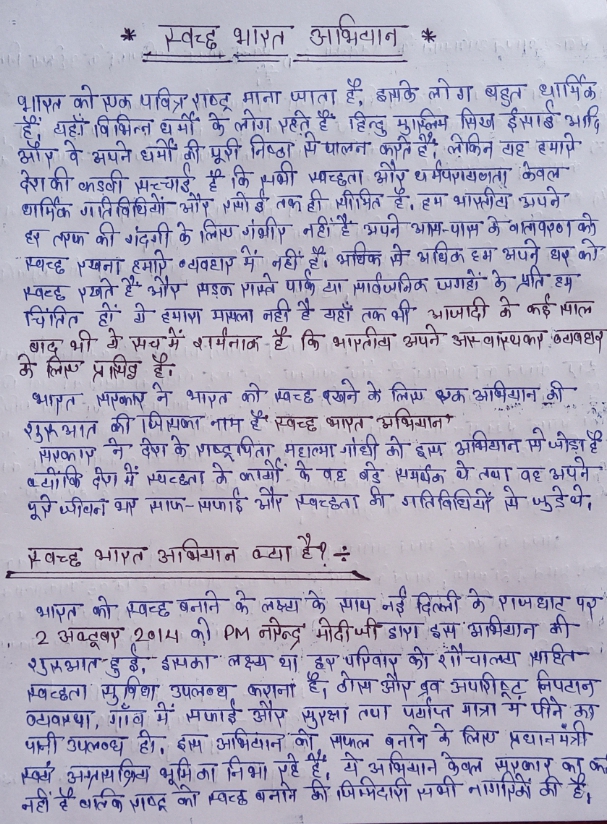 * स्वच्छ भारत अभियान *
भारत को एक पवित्र राष्ट्र माना जाता है, इसके लोग बहुत धार्मिक
है, यहाँ विभिन्न धर्मो के लोग रहते है हिन्दु मुस्लिम सिख ईसाई आदि
और वे अपने धर्मो की पूरी निष्ठा से पालन करते है, लेकिन यह हमारे
देश की कडवी सच्चाई है कि सभी स्वच्छता और धर्मपरायणता केवल
धार्मिक गतिविधियों और रसोई तक ही सीमित है, हम भारतीय अपने
हर तरफ की गंदगी के लिए गंभीर नहीं है अपने आस-पास के वातावरण को
स्वच्छ रखना हमारे व्यवहार में नहीं है, अधिक से अधिक हम अपने घर को
स्वच्छ रखते है और सड़क रास्ते पार्क या सार्वजनिक जगहों के प्रति हम
चिंतित हों ये हमारा मामला नही है यहाँ तक भी आजादी के कई साल
बाद भी ये सच में शर्मनाक है कि भारतीय अपने अस्वास्थकर व्यवहार
के लिए प्रसिद्ध है,
भारत सरकार ने भारत को स्वच्छ रखने के लिए एक अभियान की
शुरुआत की जिसका नाम है स्वच्छ भारत अभियान
सरकार ने देश के राष्ट्रपिता महात्मा गांधी को इस अभियान से जोड़ा है
क्योंकि देश में स्वच्छता के कार्यो के वह बड़े समर्थक थे तथा वह अपने
पूरे जीवन भर साफ-सफाई और स्वच्छता की गतिविधियों से जुडे थे,
स्वच्छ भारत अभियान क्या है? ÷
भारत को स्वच्छ बनाने के लक्ष्य के साथ नई दिल्ली के राजघाट पर
2 अक्टूबर 2014 को PM नरेन्द्र मोदी जी द्वारा इस अभियान की
शुरुआत हुई, इसका लक्ष्य था हर परिवार को शौचालय सहित
स्वच्छता सुविधा उपलब्ध कराना है, ठोस और द्रव अपशिष्ट निपटान
व्यवस्था, गाँव में सफाई और सुरक्षा तथा पर्याप्त मात्रा में पीने का
पानी उपलब्ध हो, इस अभियान को सफल बनाने के लिए प्रधानमंत्री
स्वयं अग्रसक्रिय भूमिका निभा रहे है, ये अभियान केवल सरकार का
नहीं है बल्कि राष्ट्र को स्वच्छ बनाने की जिम्मिदारी सभी नागरिकों की है,